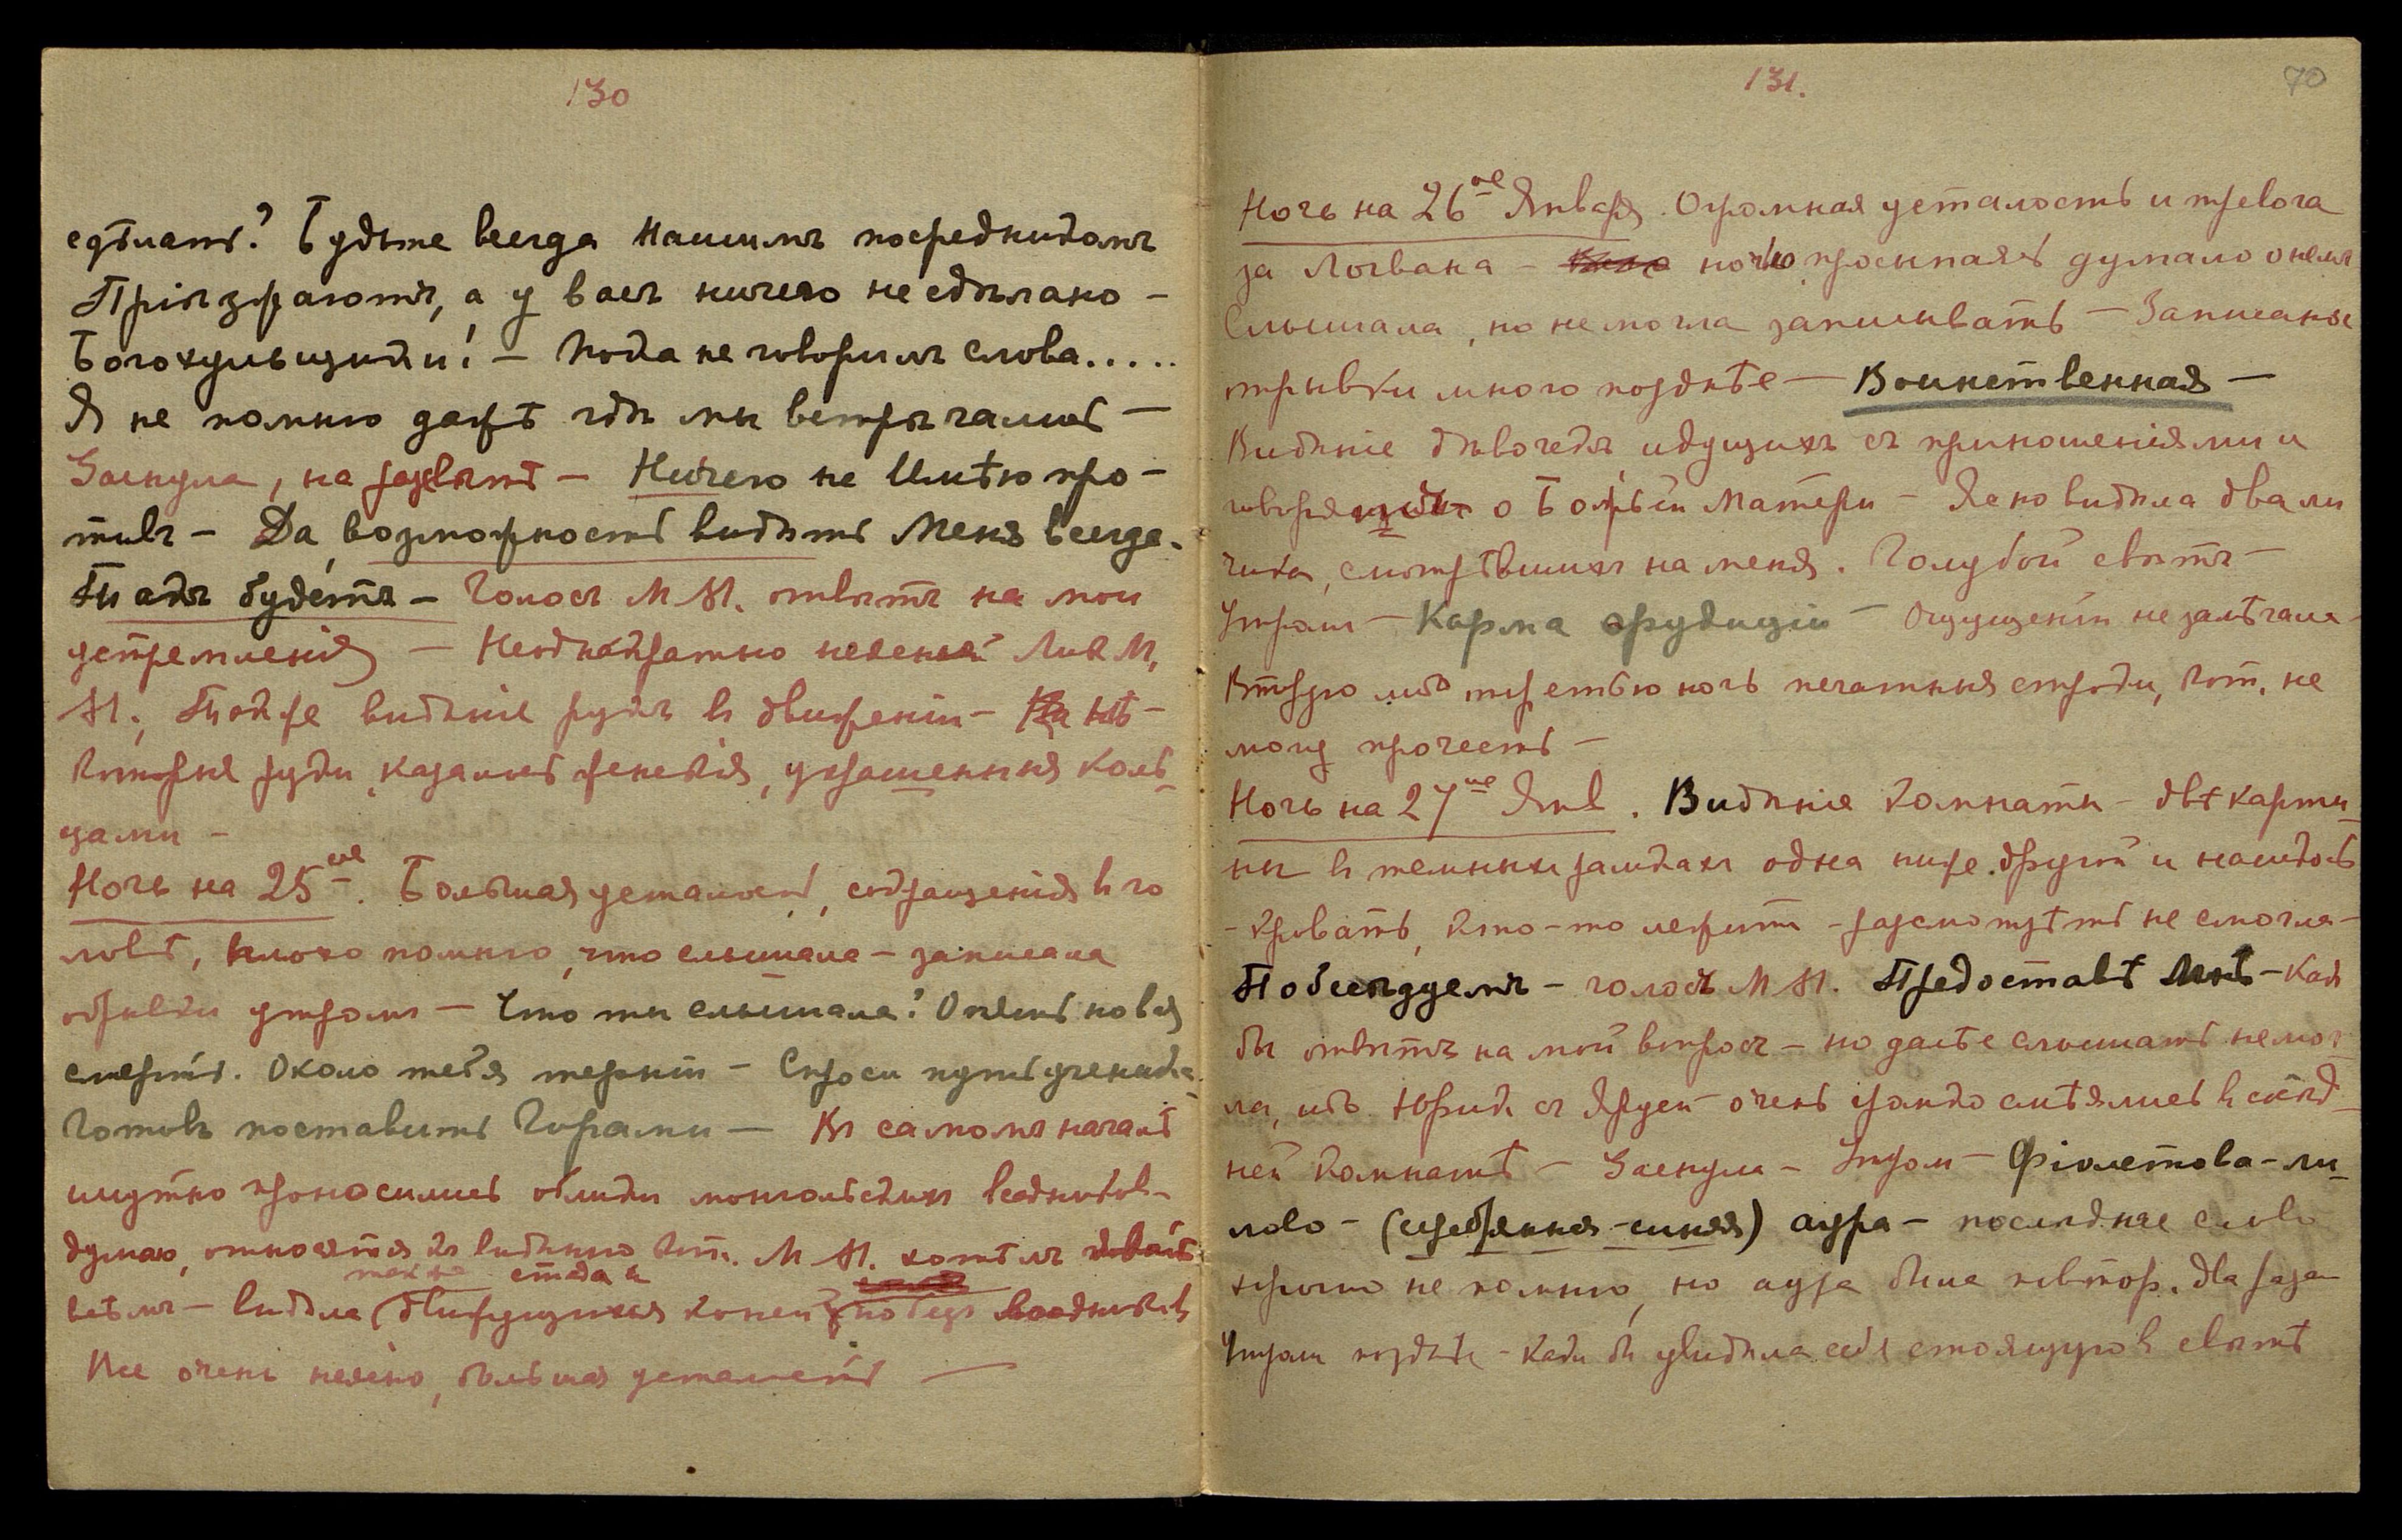 130
сдѣлать? Будьте всегда Нашимъ посредникомъ
Пріѣзжаютъ, а у васъ ничего не сдѣлано –
Богохульщики! – Пока не говоримъ слова.....
Я не помню даже гдѣ мы встрѣчались –
Заснула, на разсвѣтѣ – Ничего не Имѣю про-
тивъ – Да, возможность видѣть Меня всегда.
Такъ будетъ – Голосъ М М. отвѣтъ на мои
устремленія – Неоднократно неясный Ликъ М.
М. Также видѣніе рукъ въ движеніи – нѣ-
которыя руки казались женскія, украшенныя коль-
цами –
Ночь на 25ое. Большая усталость, сокращенія въ го
ловѣ, плохо помню, что слышала – записала
обрывки утромъ – Что ты слышала? Опять новая
смерть. Около тебя терніи – Спроси путь ученика.
Готовъ поставить Горами – Въ самомъ началѣ
смутно проносились облики монгольскихъ всадниковъ –
думаю, относятся къ видѣнію кот. М М. хотѣлъ
видѣла движущихся коней
Все очень неясно, большая усталость –
131.
70
Ночь на 26ое Января. Огромная усталость и тревога
за Логвана – ночью просыпаясь думало о немъ
Слышала, но не могла записывать – Записаны
отрывки много позднѣе – Воинственная –
Видѣніе дѣвочекъ идущихъ съ приношеніями и
говорящихъ о Божьей Матери – Ясно видѣла два ли
чика, смотрѣвшихъ на меня. Голубой свѣтъ –
Утромъ – Карма эрудиціи – Ощущеній не замѣчала –
Вторую либо третью ночь печатныя строки, кот. не
могу прочесть –
Ночь на 27ое Янв. Видѣніе комнаты – двѣ карти-
ны въ темныхъ рамкахъ одна ниже другой и наискось
– кровать, кто-то лежитъ – разсмотрѣть не смогла –
Побесѣдуемъ – голосъ М М. Предоставь Мнѣ – Какъ
бы отвѣтъ на мой вопросъ – но далѣе слышать не мог-
ла, ибо Юрикъ съ Яруей очень громко смѣялись въ сосѣд-
ней комнатѣ – Заснула – Утром – Фіолетова-ли-
лово – (серебрянная-синяя) аура – послѣднее слово
хорошо не помню, но аура была повтор. два раза
Утромъ позднѣе – Какъ бы увидѣла себя стоящую въ свѣтѣ